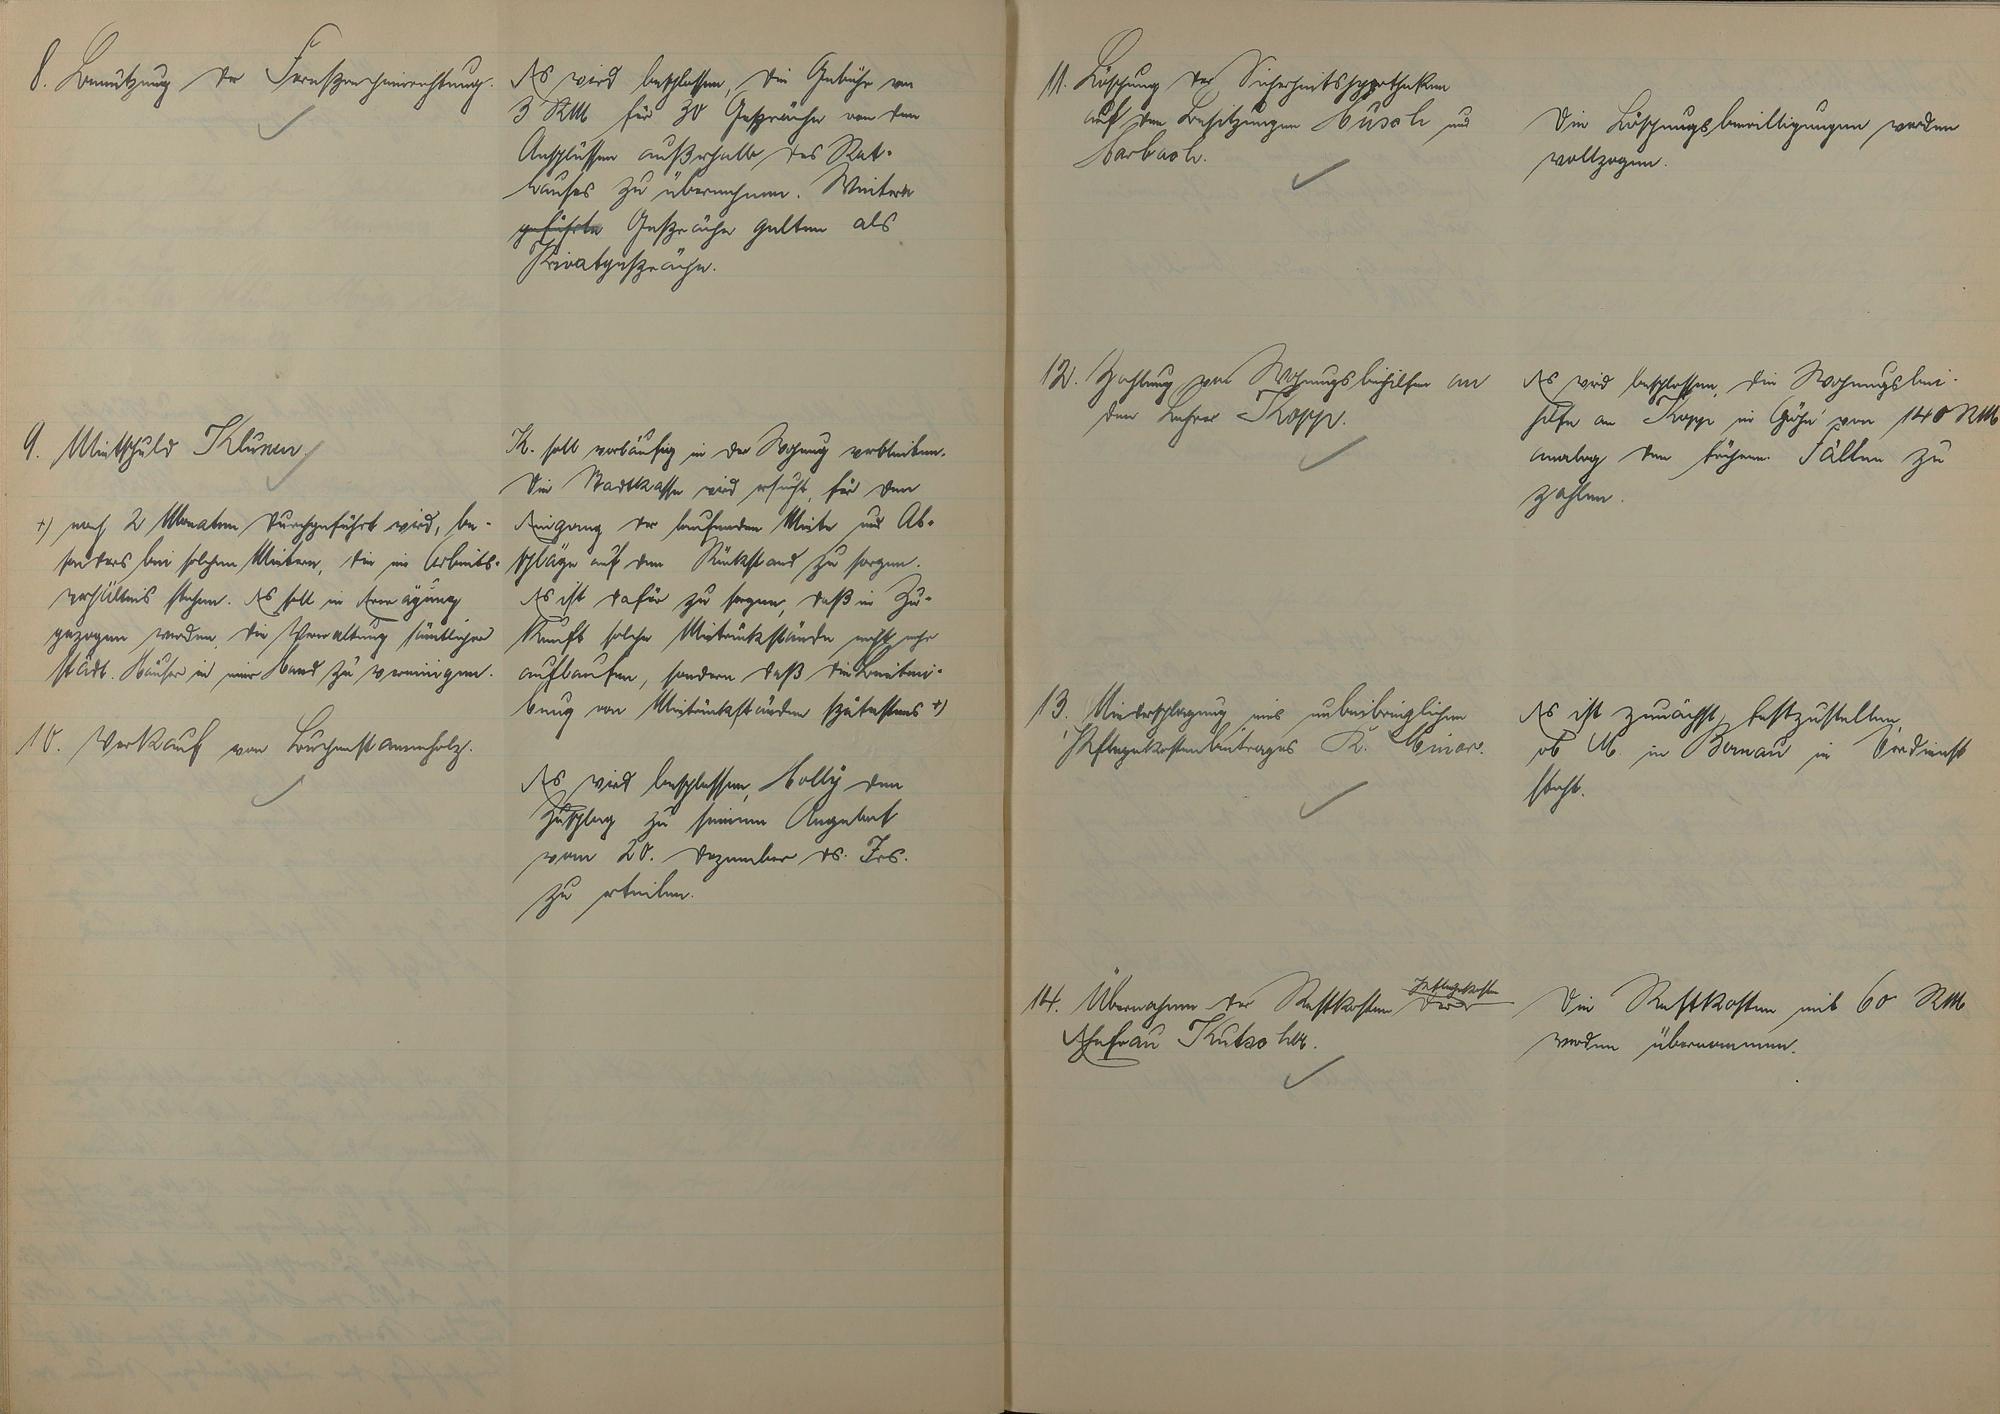 8. Benutzung der Fernsprecheinrichtung.
Es wird beschlossen, die Gebühr von
3 RM für 30 Gespräche von den
Anschlüssen außerhalb des Rat-
hauses zu übernehmen. Weitere
geführte Gespräche gelten als
Privatgespräche.
9. Mietschuld Klunen
K. soll vorläufig in der Wohnung verbleiben.
Die Stadtkasse wird ersucht, für den
Eingang der laufenden Miete und Ab-
schläge auf den Rückstand zu sorgen.
Es ist dafür zu sorgen, daß in Zu-
kunft solche Mietrückstände nicht mehr
auflaufen, sondern daß die Beitrei-
bung von Mietrückständen spätestens +)
+) nach 2 Monaten durchgeführt wird, be-
sonders bei solchen Mietern, die im Arbeits-
verhältnis stehen. Es soll in Erwägung
gezogen werden, die Verwaltung sämtlicher
städt. Häuser in einer Hand zu vereinigen.
10. Verkauf von Buchenstammholz.
Es wird beschlossen, Holly den
Zuschlag zu seinem Angebot
vom 20. Dezember ds. Jrs.
zu erteilen.
11. Löschung der Sicherheitshypotheken
auf den Besitzungen Hüsch und
Harbach.
Die Löschungsbewilligungen werden
vollzogen.
12. Zahlung von Wohnungsbeihilfen an
den Lehrer Kopp.
Es wird beschlossen, die Wohnungsbei-
hilfe an Kopp in Höhe von 140 RM
analog den früheren Fällen zu
zahlen.
13. Niederschlagung eines unbeibringlichen
Pflegekostenbeitrages K. Minor.
Es ist zunächst festzustellen,
ob M. in Bernau in Verdienst
steht.
14. Übernahme der Restkosten Pflegekosten der
Ehefrau Kutscher.
Die Restkosten mit 60 RM
werden übernommen.